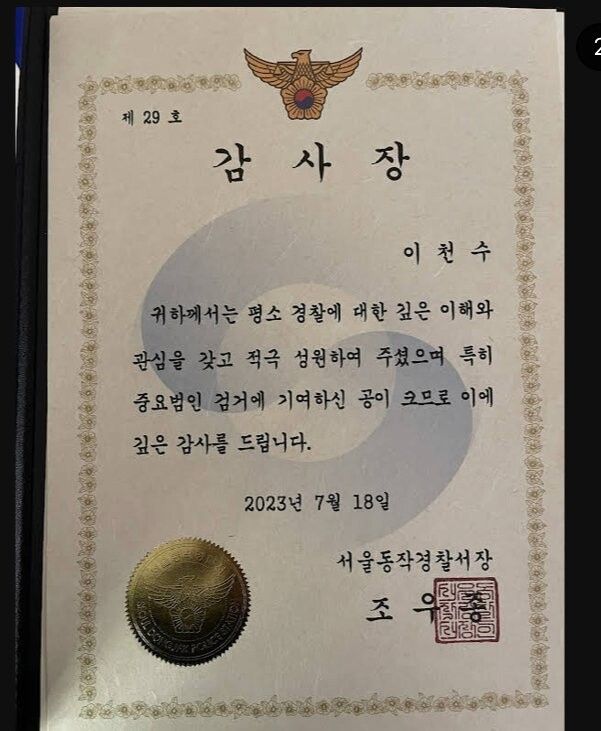 제 29 호
감 사 장
이 천 수
귀하께서는 평소 경찰에 대한 깊은 이해와
관심을 갖고 적극 성원하여 주셨으며 특히
중요범인 검거에 기여하신 공이 크므로 이에
깊은 감사를 드립니다.
2023년 7월 18일
서울동작경찰서장
조 우 종
SEOUL DONGJAK POLICE STATION
2